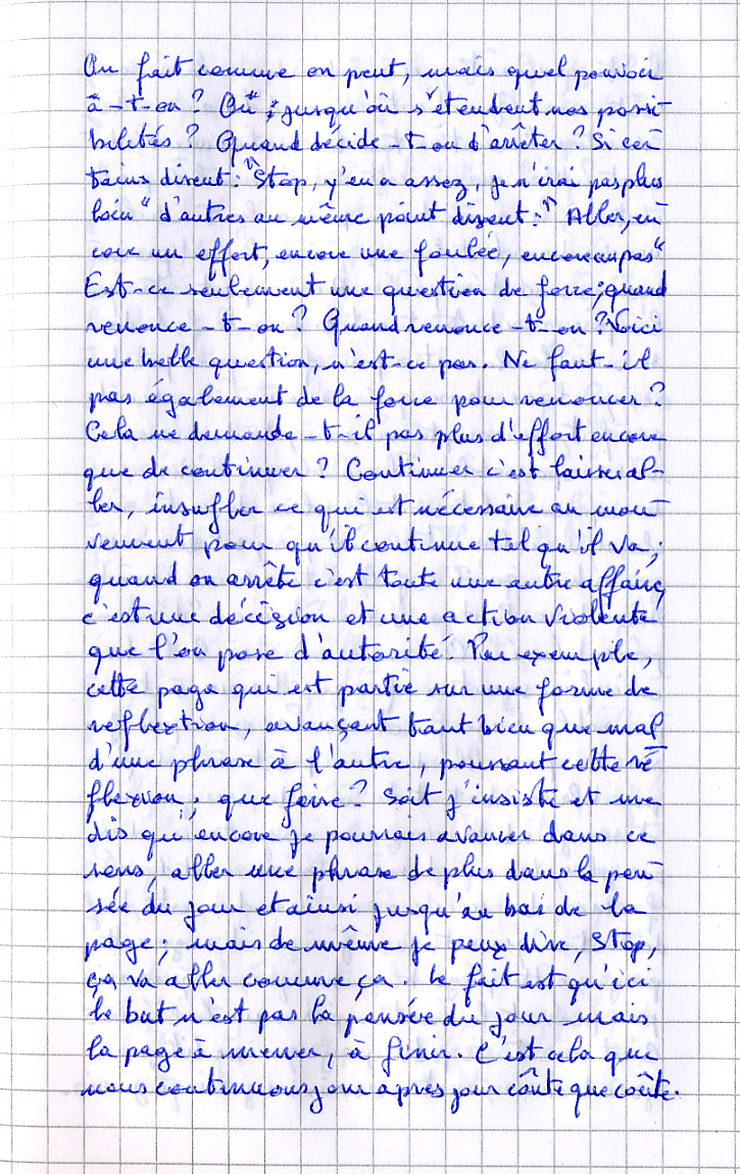 On fait comme on peut, mais quel pouvoir
a-t-on ? Où, jusqu'où s'étendent nos possi-
bilités ? Quand décide-t-on d'arrêter ? Si cer-
tains disent : "Stop, y'en a assez, je n'irai pas plus
loin" d'autres au même point disent : "Aller, en-
core un effort, encore une foulée, encore un pas"
Est-ce seulement une question de force ; quand
renonce-t-on ? Quand renonce-t-on ? Voici
une belle question, n'est-ce pas. Ne faut-il
pas également de la force pour renoncer ?
Cela ne demande-t-il pas plus d'effort encore
que de continuer ? Continuer c'est laisser al-
ler, insuffler ce qui est nécessaire au mou-
vement pour qu'il continue tel qu'il va ;
quand on arrête c'est toute une autre affaire,
c'est une décision et une action violente
que l'on pose d'autorité. Par exemple,
cette page qui est partie sur une forme de
reflextion, avançant tant bien que mal
d'une phrase à l'autre, poussant cette ré-
flexion, que faire ? Soit j'insiste et me
dis qu'encore je pourrais avancer dans ce
sens, aller une phrase de plus dans la pen-
sée du jour et ainsi jusqu'au bas de la
page ; mais de même je peux dire, Stop,
ça va aller comme ça. Le fait est qu'ici
le but n'est pas la pensée du jour mais
la page à mener, à finir. C'est cela que
nous continuons jour après jour coûte que coûte.